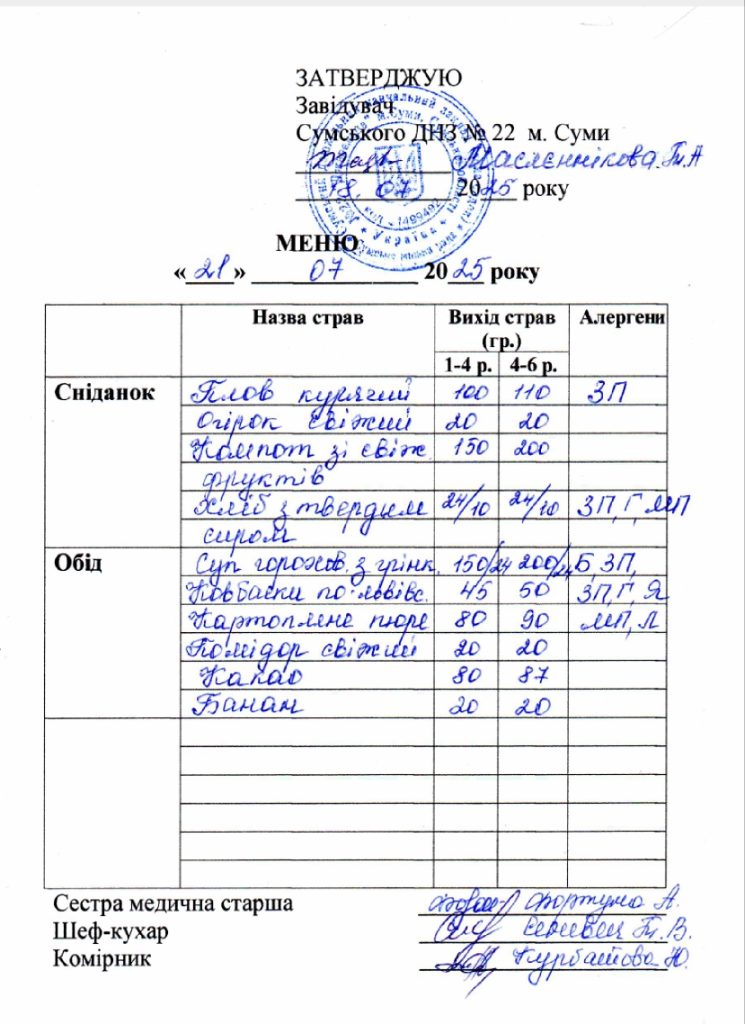 ЗАТВЕРДЖУЮ
Завідувач
Сумського ДНЗ № 22 м. Суми
Маслєннікова Т.А
18.07 2025 року
МЕНЮ
« 21 » 07 2025 року
Назва страв Вихід страв (гр.) Алергени
1-4 р. 4-6 р.
Сніданок Плов курячий 100 110 ЗП
Огірок свіжий 20 20
Компот зі свіж. 150 200
фруктів
Хліб з твердим 24/10 24/10 ЗП, Г, МП
сиром
Обід Суп горохов. з грінк. 150/24 200/24 Б, ЗП,
Ковбаски по-львівс. 45 50 ЗП, Г, Я
Картопляне пюре 80 90 МП, Л
Помідор свіжий 20 20
Какао 80 87
Банан 20 20
Сестра медична старша Фортуна А.
Шеф-кухар Т.В.
Комірник Курбатова Ю.